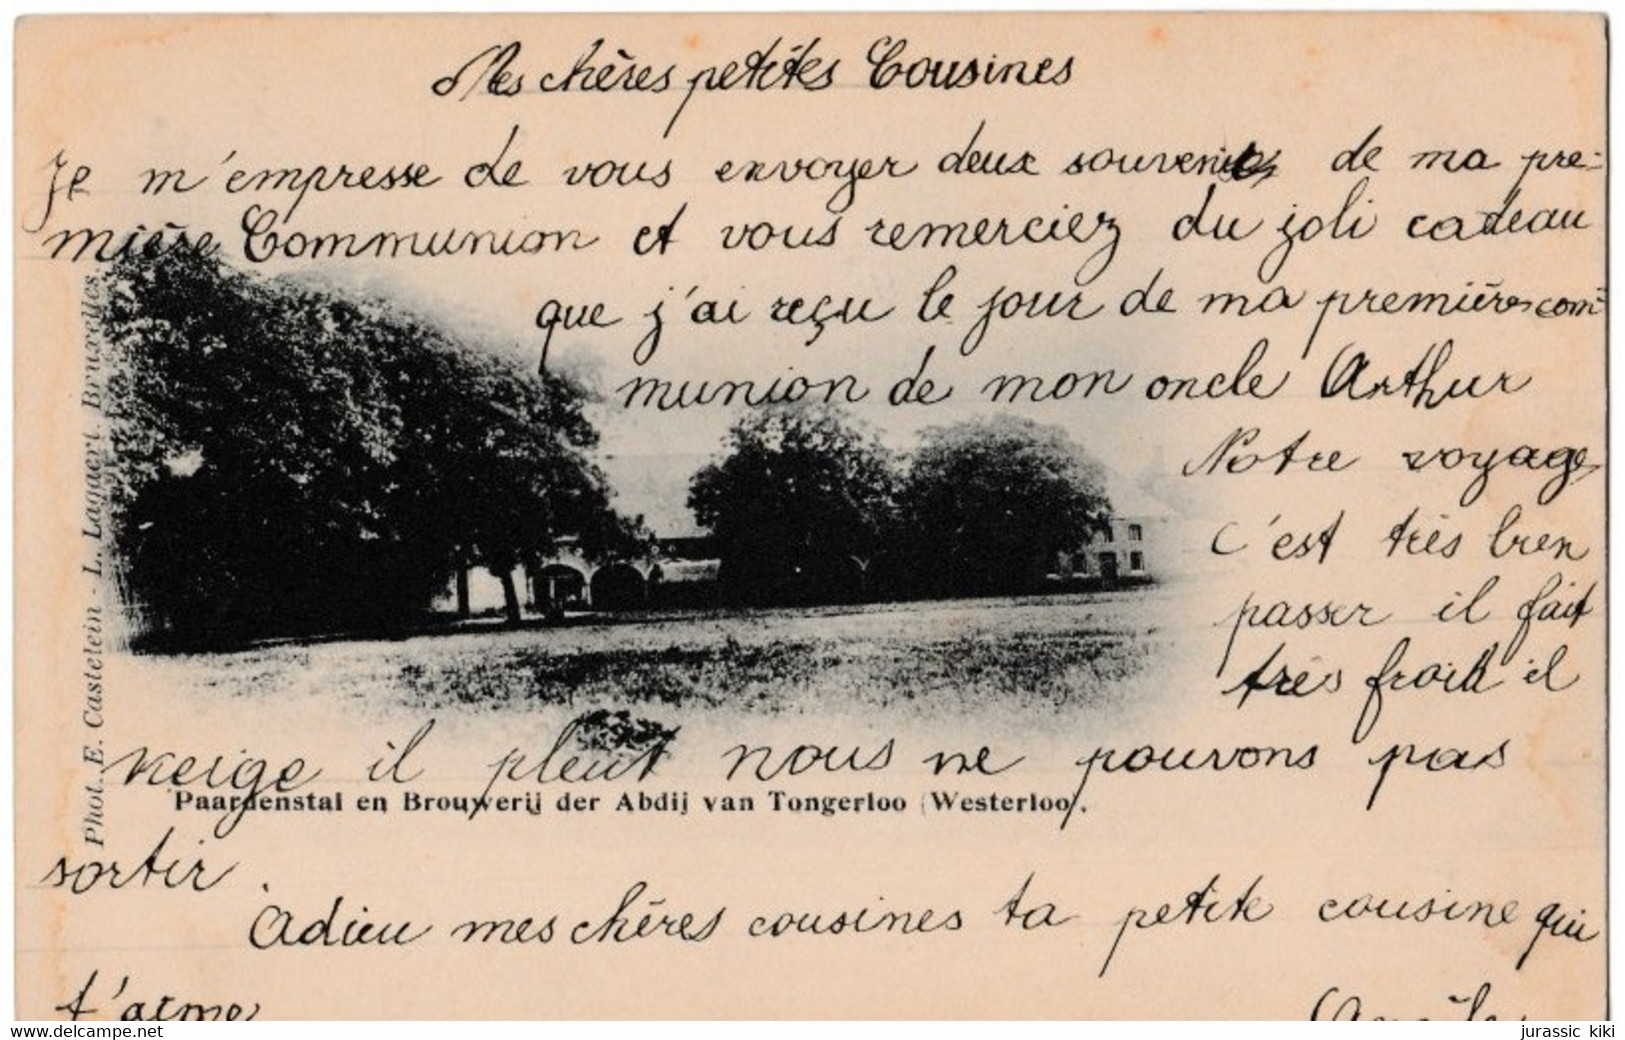 Mes chères petites Cousines
Je m'empresse de vous envoyer deux souvenirs de ma pre-
mière Communion et vous remerciez du joli cadeau
que j'ai reçu le jour de ma premières com-
munion de mon oncle Arthur
Notre voyage
c'est très bien
passer il fait
très froid il
neige il pleut nous ne pouvons pas
sortir
Adieu mes chères cousines ta petite cousine qui
t'aime
Phot. E. Castelein - L. Lagaert, Bruxelles.
Paardenstal en Brouwerij der Abdij van Tongerloo (Westerloo).
delcampe.net
jurassic kiki